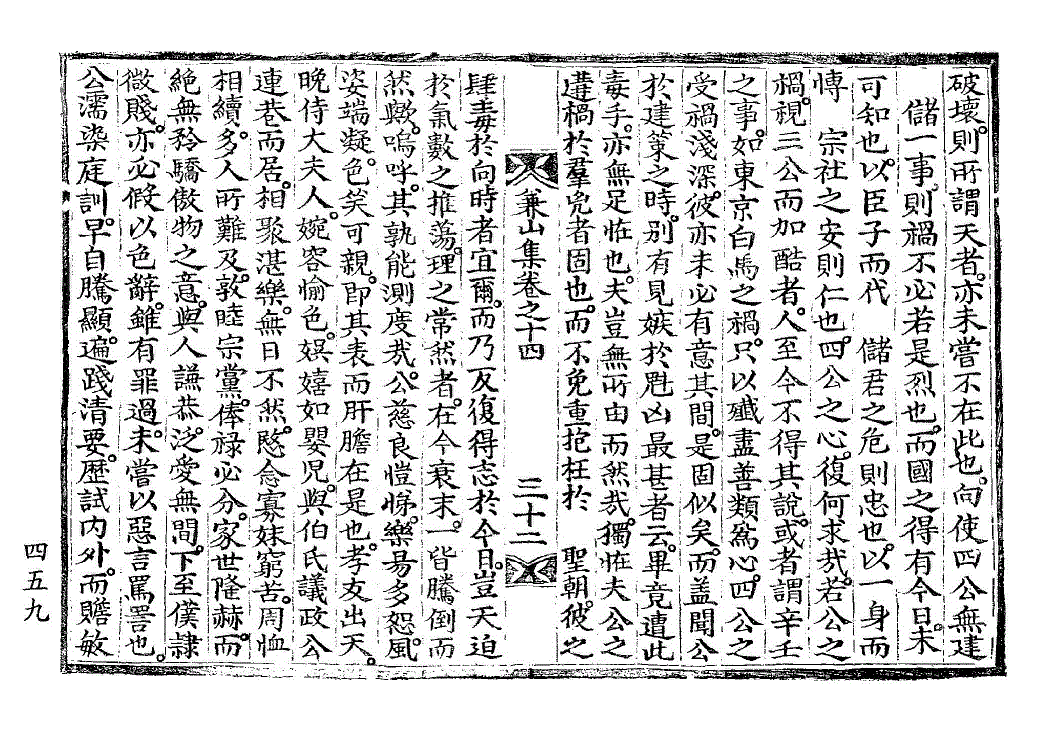 破壞則所謂天者亦未嘗不在此也向使四公無建
儲一事則禍不必若是烈也而國之得有今日未
可知也以臣子而代 儲君之危則忠也以一身而
傳 宗社之安則仁也四公之心復何求㢤若公之
禍視三公而加酷者人至今不得其說或者謂辛壬
之事如東京白馬之禍只以殲盡善類爲心四公之
受禍淺深彼亦未必有意其間是固似矣而盖聞公
於建策之時别有見嫉於兇凶最甚者云畢竟遭此
毒手亦無足恠也夫豈無所由而然㢤獨恠夫公之
遘禍於羣兇者固也而不免重抱枉於 聖朝彼之
兼山集卷之十四 三十二
肆毒於向時者宜爾而乃反復得志於今日豈天迫
於氣數之推蕩理之常然者在今衰末一皆騰倒而
然歟嗚呼其孰能測度㢤公慈良愷悌樂易多恕風
姿端凝色笑可親即其表而肝膽在是也孝友出天
晩侍大夫人婉容愉色娯嬉如嬰兒與伯氏議政公
連巷而居相聚湛樂無日不然愍念寡妹窮苦周恤
相續多人所難及敦睦宗黨俸祿必分家世隆赫而
絶無矜驕傲物之意與人謙恭泛愛無間下至僕隷
微賤亦必假以色辭雖有罪過未嘗以惡言罵詈也
公濡染庭訓早自騰顯遍踐清要歷試内外而贍敏
四五九